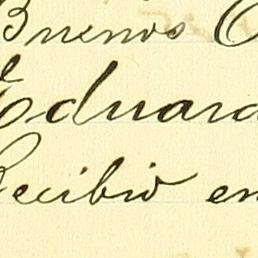 Buenos
Eduard
Recibio en